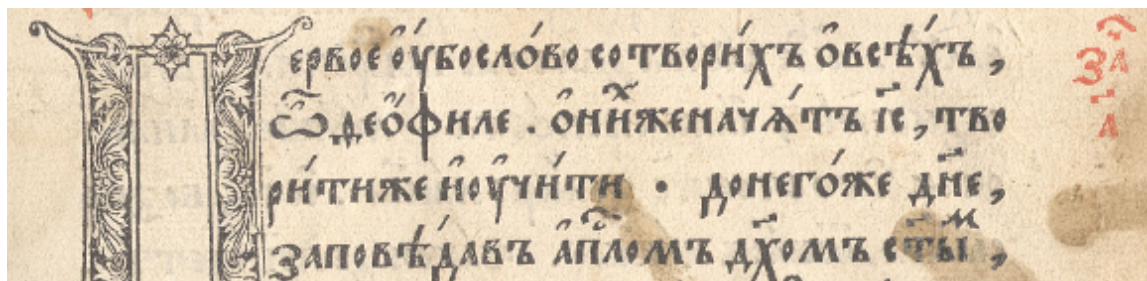 Первое оу҆́бо сло́во сотвори́хъ о҆всѣ́хъ ,
ѽдео҆́филе . о҆ни́хже начѧ́тъ і҆с҃ , тво
ри́тиже и҆оу҆чи́ти • донего́же дн҃е ,
заповѣ́давъ а҆пⷭ҇ломъ дх҃омъ ст҃ыⷨ ,
заⷱ҇
а҃